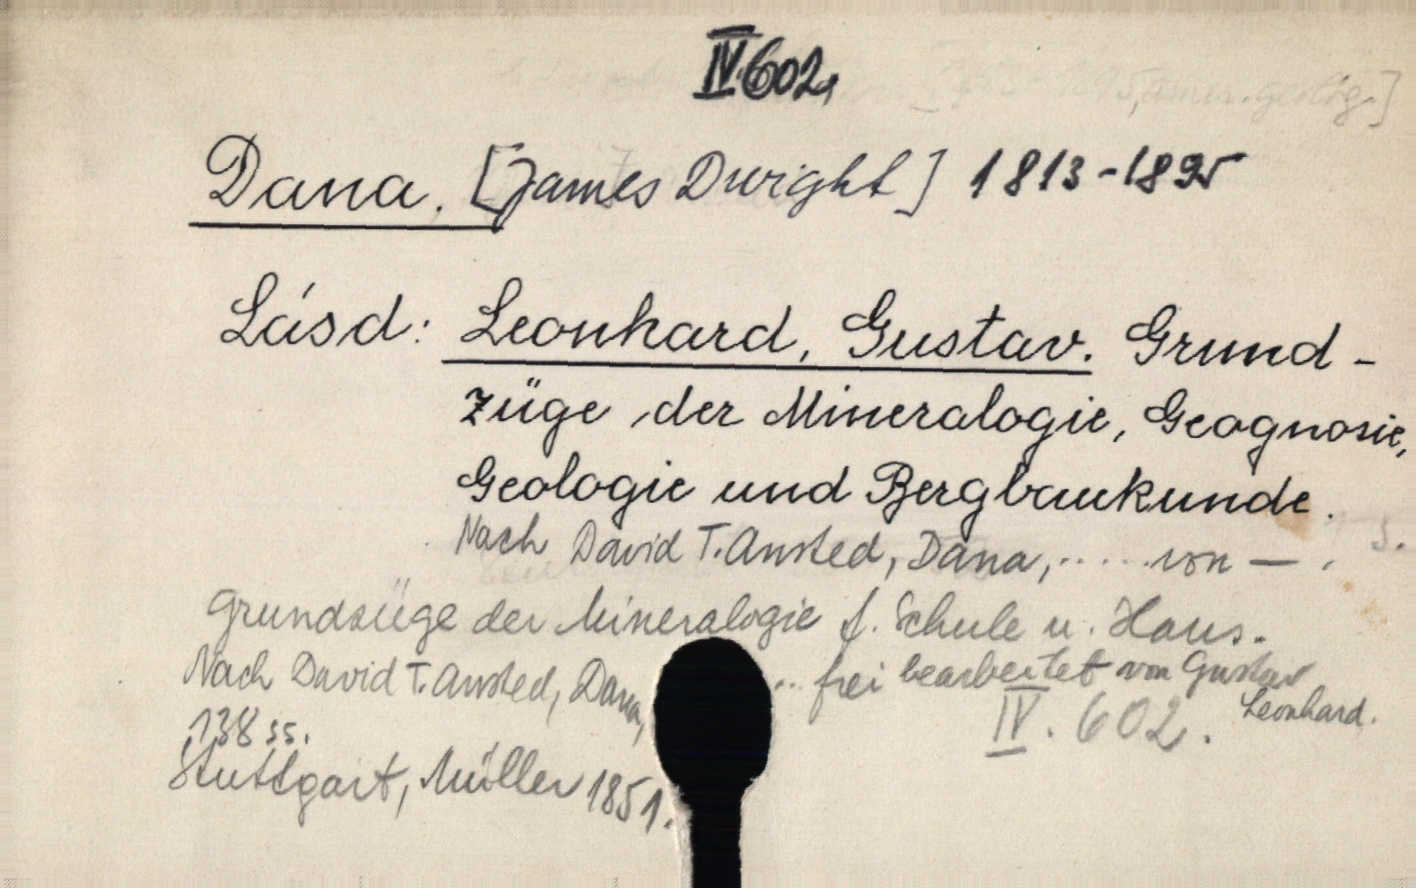 IV.602.
amer. geológ.]
Dana. [James Dwight] 1813-1895
Lásd: Leonhard, Gustav. Grund-
züge der Mineralogie, Geognosie,
Geologie und Bergbaukunde.
Nach David T. Ansted, Dana, ..... von — .
Grundzüge der Mineralogie f. Schule u. Haus.
Nach David T. Ansted, Dana, ... frei bearbeitet von Gustav
Leonhard.
138 ss. IV. 602.
Stuttgart, Müller 1851.